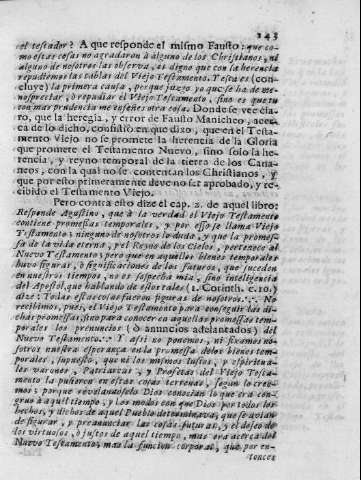 143
el testador? A que responde el mismo Fausto: que co-
mo estas cosas no agradaron à alguno de los Christianos, ni
alguno de nosotros las observa, es digno que con la herencia
repudiemos las tablas del Viejo Testamento. Testa es (con-
cluye) la primera causa, porque juzgo yo que se ha de me-
nospreciar, ò repudiar el Viejo Testamento, sino es que tu
con mas prudencia me enseñes otra cosa. Donde se vee cla-
ro, que la heregia, y error de Fausto Manicheo, acer-
ca de lo dicho, consistiò en que dixo, que en el Testa-
mento Viejo no se promete la herencia de la Gloria
que promete el Testamento Nuevo, sino solo la he-
rencia, y reyno temporal de la tierra de los Cana-
neos, con la qual no se contentan los Christianos, y
que por esto primeramente deve no ser aprobado, y re-
cibido el Testamento Viejo.
Pero contra esto dize el cap. 2. de aquel libro:
Responde Agustino, que à la verdad el Viejo Testamento
contiene promessas temporales, y por esso se llama Viejo
Testamento; ninguno de nosotros lo duda, y que la promes-
sa de la vida eterna, y el Reyno de los Cielos, pertenece al
Nuevo Testamento; pero que en aquellos bienes temporales
huvo figuras, ò significaciones de los futuros, que suceden
en nuestros tiempos, no es sospecha mia, sino inteligencia
del Apostol, que hablando de estos tales (1. Corinth. c. 10.)
dize: Todas estas cosas fueron figuras de nosotros.∵. No
recibimos, pues, el Viejo Testamento para conseguir las di-
chas promessas; sino para conocer en aquellas promessas tem-
porales los prenuncios (ò anuncios adelantados) del
Nuevo Testamento.∵ Y assi no ponemos, ni fixamos no-
sotros nuestra esperança en la promessa de los bienes tem-
porales, supuesto, que ni los mismos Santos, y espiritua-
les varones, Patriarcas, y Profetas del Viejo Testa-
mento la pusieron en estas cosas terrenas, segun lo cree-
mos: porque revelandoselo Dios conocian lo que era con-
gruo à aquel tiempo, y los modos con que Dios por todos los
hechos, y dichos de aquel Pueblo determinava, que se avian
de figurar, y preanunciar las cosas futuras, y el deseo de
los virtuosos, ò justos de aquel tiempo, mas era acerca del
Nuevo Testamento; mas la funcion corporal, que por en-
tonces